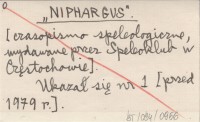 "NIPHARGUS".
[czasopismo speleologiczne,
wydawane przez Speleoklub w
Częstochowie].
Ukazał się nr 1 [przed
1979 r.].